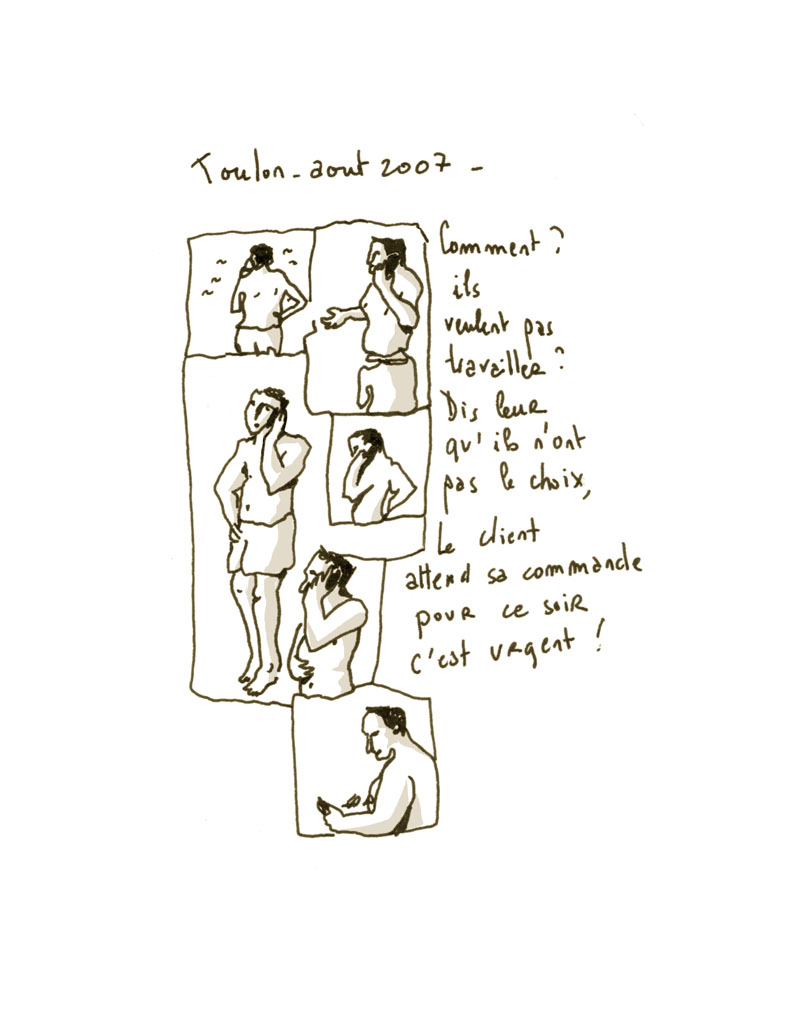 Toulon - aout 2007 -
Comment ?
ils
veulent pas
travailler ?
Dis leur
qu'ils n'ont
pas le choix,
Le client
attend sa commande
pour ce soir
c'est urgent !